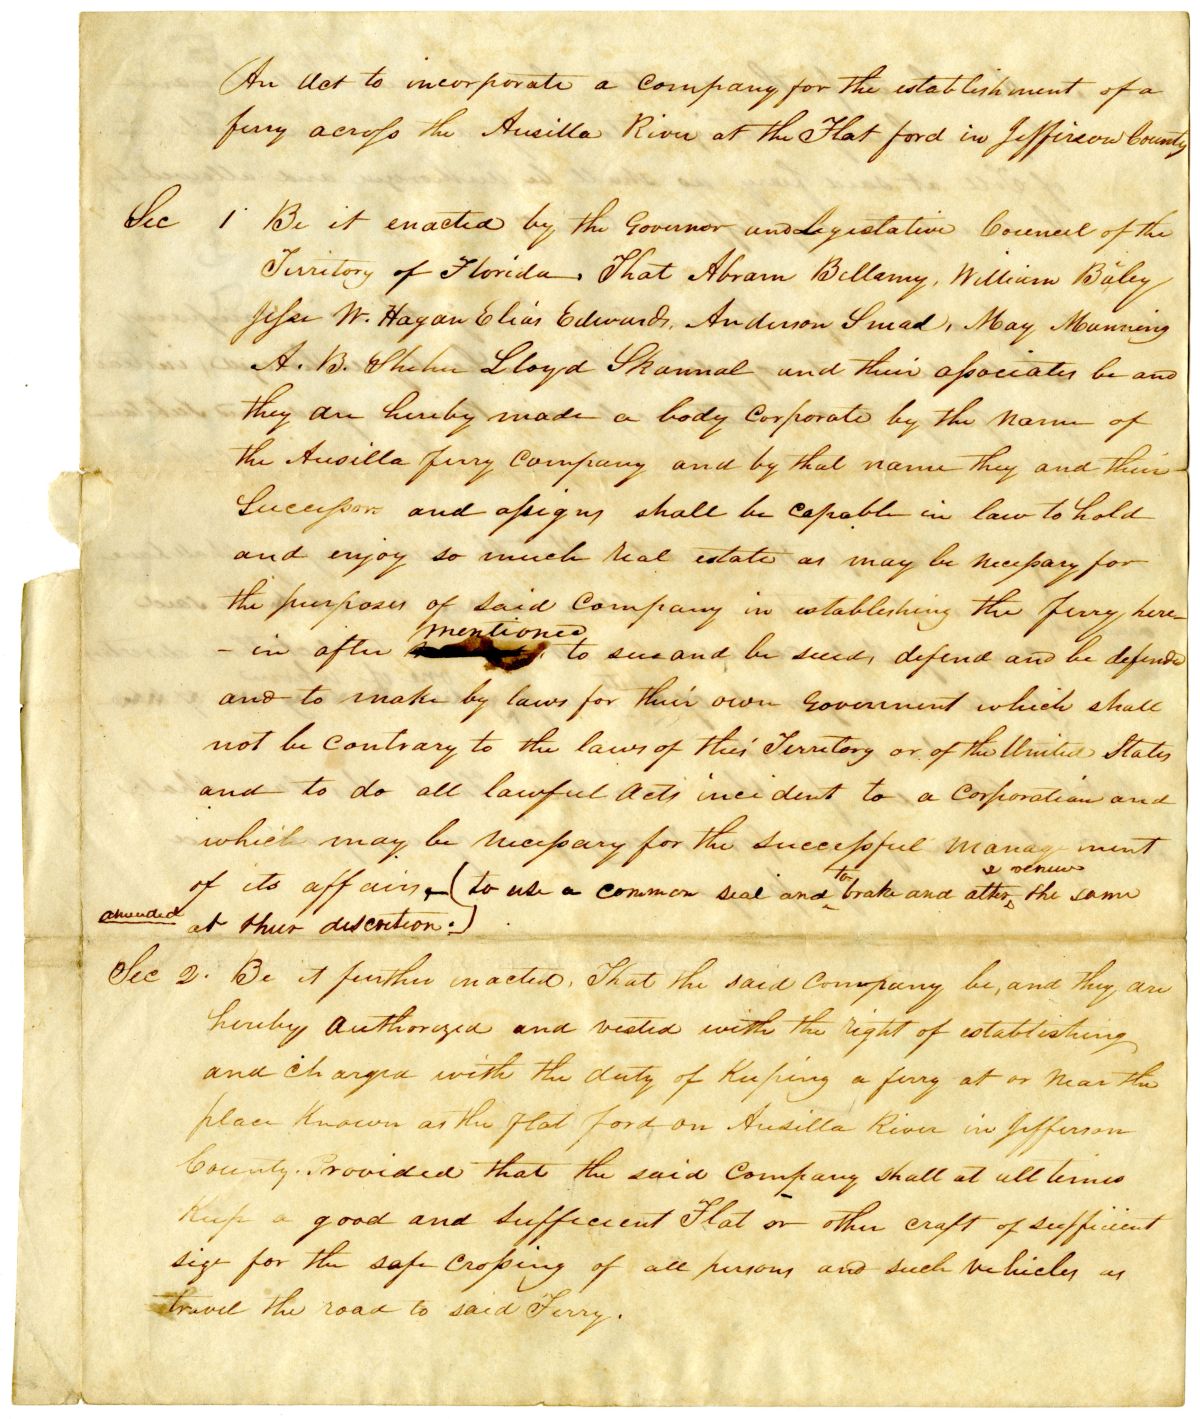 An Act to incorporate a Company for the establishment of a
ferry across the Ausilla River at the Flat ford in Jefferson County
Sec 1 Be it enacted by the Governor and Legislative Council of the
Territory of Florida, That Abram Bellamy, William Baley
Jesse W. Hagan Elias Edwards, Anderson Smad, May Manning
A. B. Lloyd Skannal and their associates be and
they are hereby made a body Corporate by the name of
the Ausilla ferry Company and by that name they and their
Successors and assigns shall be capable in law to hold
and enjoy so much real estate as may be necessary for
the purposes of said Company in establishing the ferry here-
mentioned
- in after to sue and be sued, defend and be defended
and to make by laws for their own Government which shall
not be contrary to the laws of this Territory or of the United States
and to do all lawful Acts incident to a Corporation and
which may be necessary for the Successful Management
of its affairs, (to use a common seal and to brake and alter & renew the same
amended at their discretion.)
Sec 2. Be it further enacted, That the said Company be, and they are
hereby Authorized and vested with the right of establishing
and charged with the duty of Keeping a ferry at or near the
place Known as the Flat ford on Ausilla River in Jefferson
County. Provided that the said Company shall at all times
Keep a good and sufficient Flat or other craft of sufficient
size for the safe crossing of all persons and such vehicles as
travel the road to said Ferry.